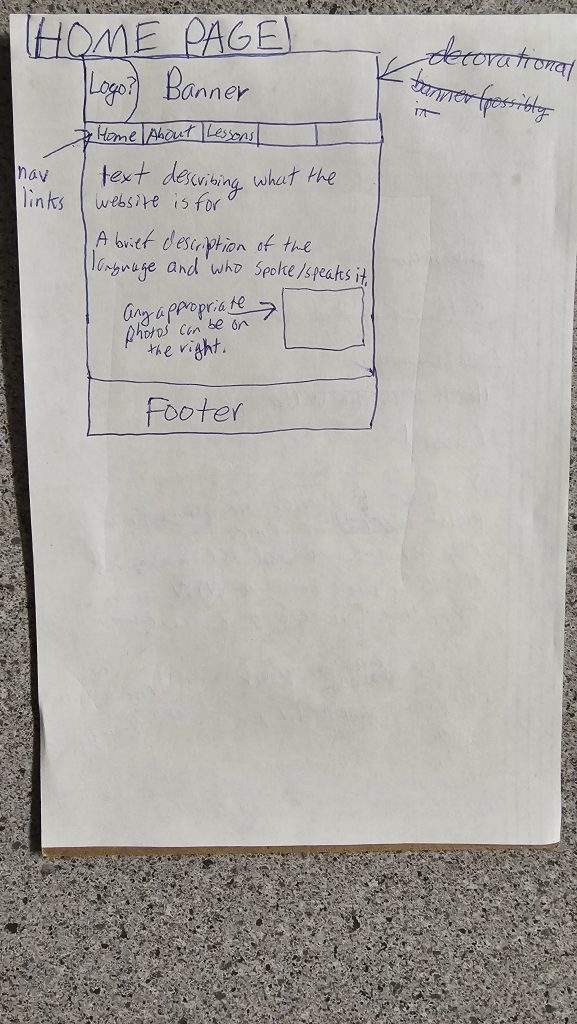 HOME PAGE
Logo?
Banner
decorational
banner (possibly
in
Home
About
Lessons
nav
links
text describing what the
website is for
A brief description of the
language and who spoke/speaks it.
any appropriate
photos can be on
the right.
Footer